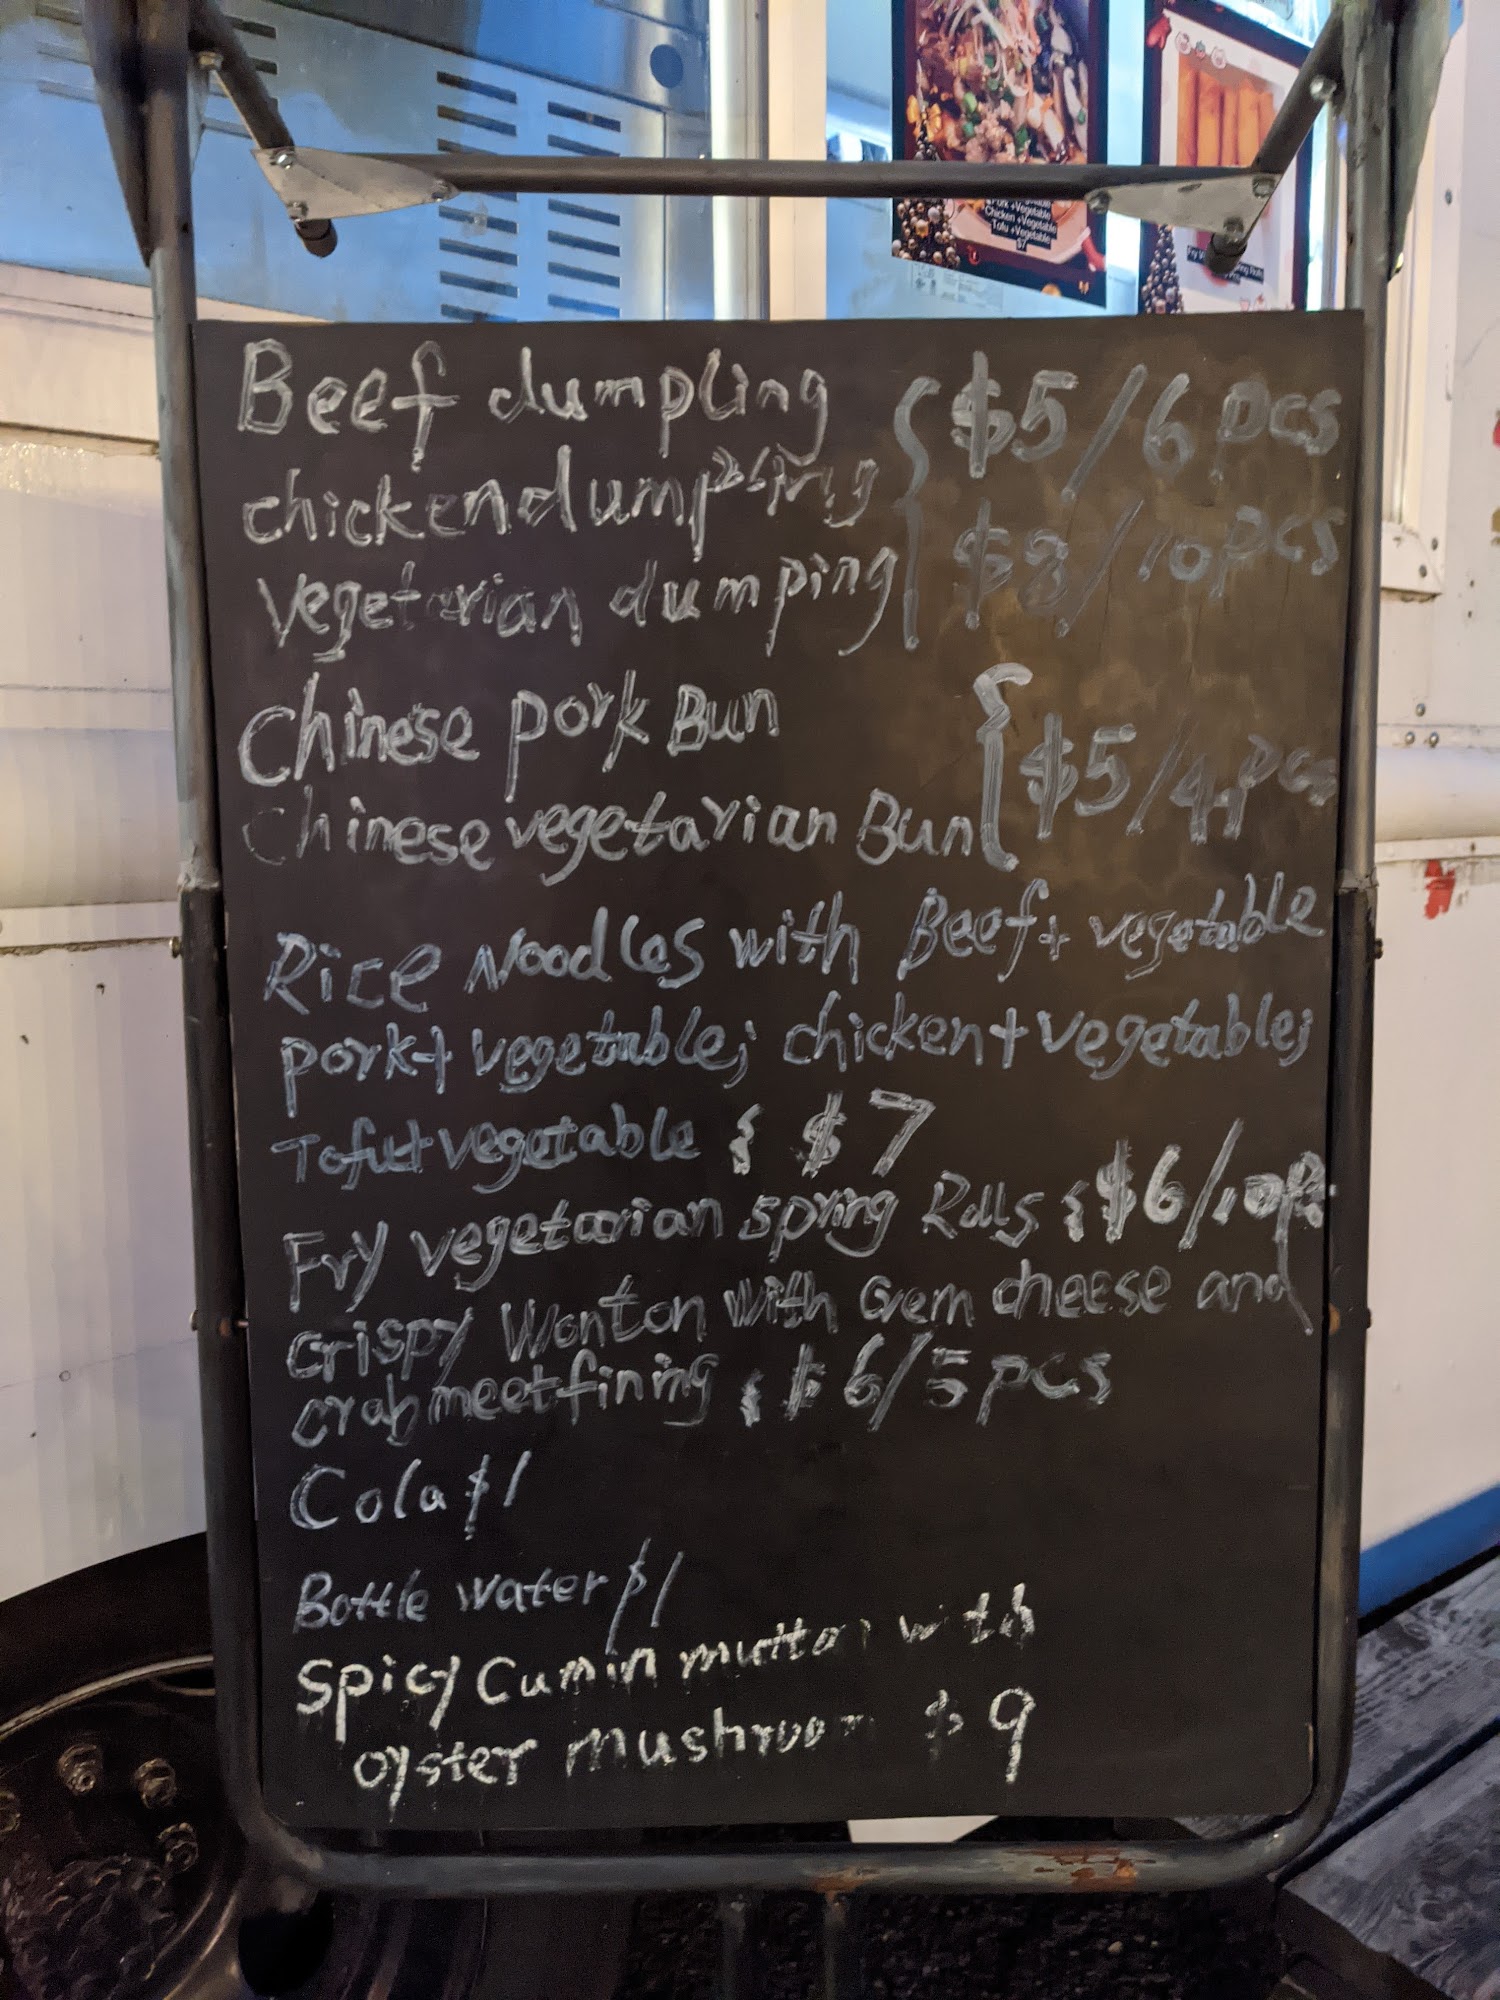 Pork +Vegetable
Chicken +Vegetable
Tofu +Vegetable
$7
Beef dumpling { $5/6 pcs
chicken dumpling
vegetarian dumping $8/10 pcs
Chinese pork Bun
Chinese vegetarian Bun { $5/4 pcs
Rice Noodles with Beef + vegetable
pork + vegetable; chicken + vegetable;
Tofu + vegetable { $7
Fry vegetarian spring Rolls { $6/10 p
Crispy Wonton with Crem cheese and
crab meet fining { $6/5 pcs
Cola $1
Bottle water $1
Spicy Cumin mutton with
oyster mushroom $9